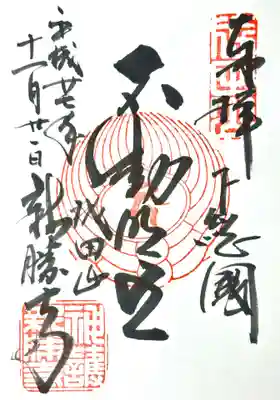 奉拝
下総國
不動明王
成田山
新勝寺
平成廿七年
十一月廿一日